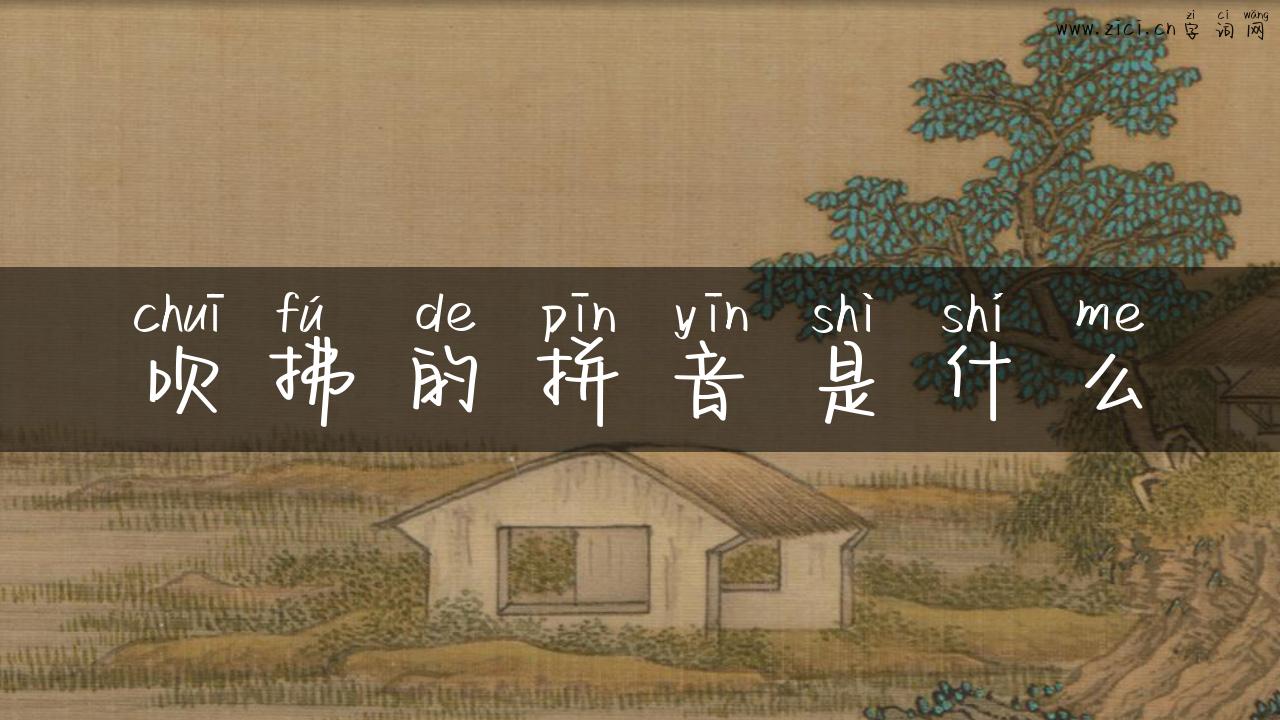 zì cí wǎng
www.zici.cn 字词网
chuī fú de pīn yīn shì shí me
吹拂的拼音是什么